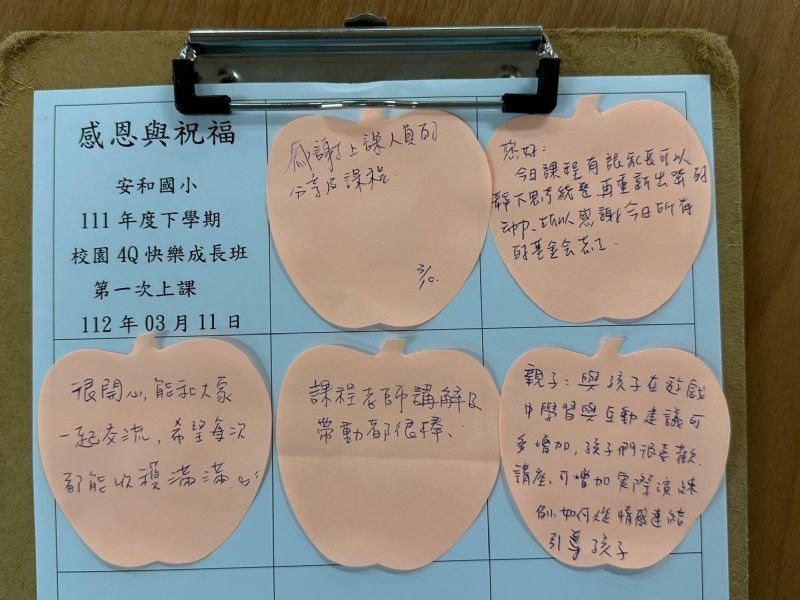 感恩與祝福
安和國小
111 年度下學期
校園 4Q 快樂成長班
第一次上課
112 年 03 月 11 日
感謝上課人員的
分享及課程.
您好:
今日課程有讓家長可以
靜下思考統整再重新出發的
动力、所以感謝今日所有
的基金会志工.
很開心,能和大家
一起交流,希望每次
都能收穫滿滿.
課程老師講解及
帶動都很棒、
親子:與孩子在遊戲
中學習與互動建議可
多增加,孩子們很喜歡.
講座:可增加實際演練
例:如何從情感連結
引導孩子